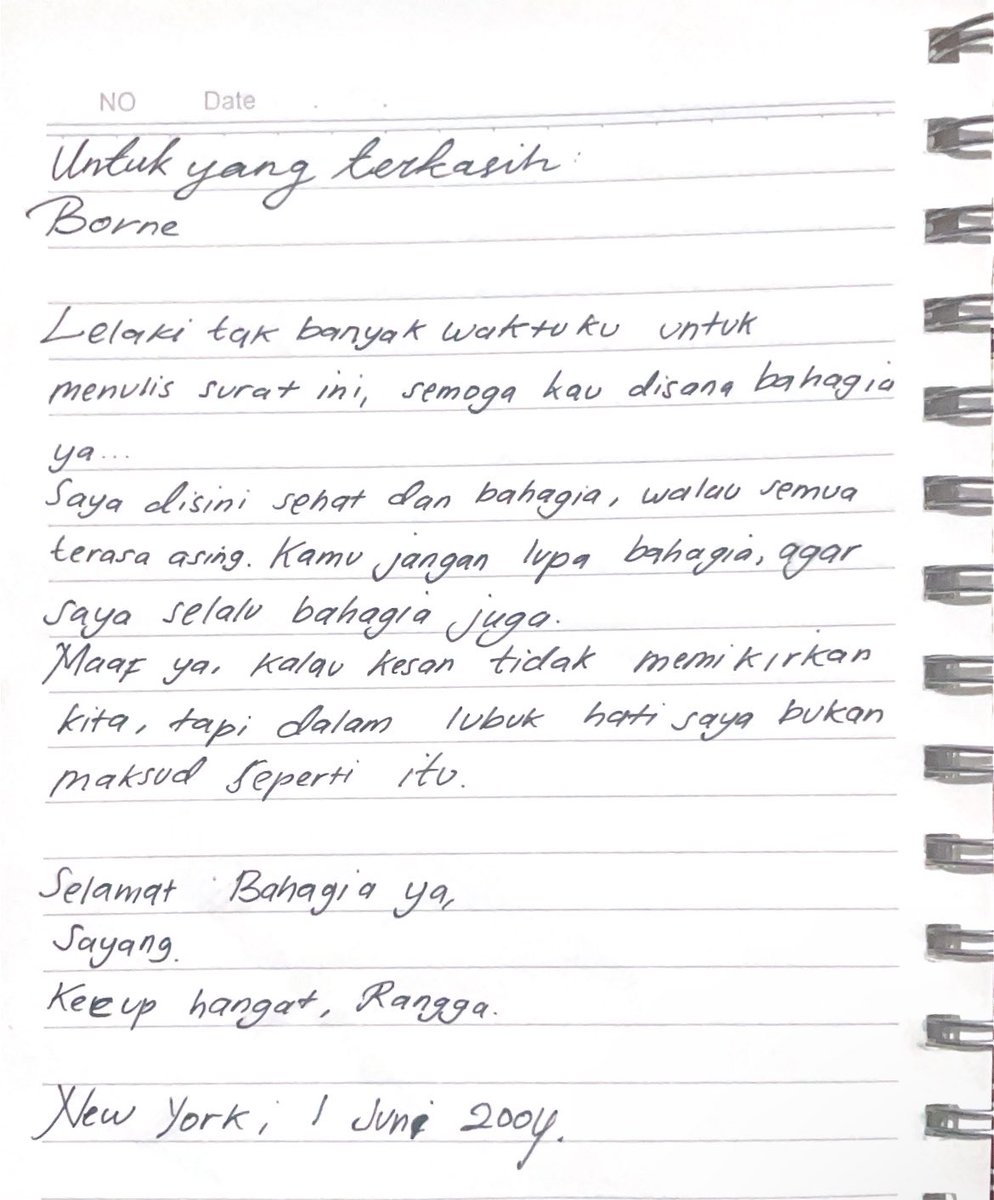 NO Date . .
Untuk yang terkasih :
Borne
Lelaki tak banyak waktuku untuk
menulis surat ini, semoga kau disana bahagia
ya...
Saya disini sehat dan bahagia, walau semua
terasa asing. Kamu jangan lupa bahagia, agar
saya selalu bahagia juga.
Maaf ya, kalau kesan tidak memikirkan
kita, tapi dalam lubuk hati saya bukan
maksud seperti itu.
Selamat Bahagia ya,
Sayang.
Kecup hangat, Rangga.
New York, 1 Juni 2004.